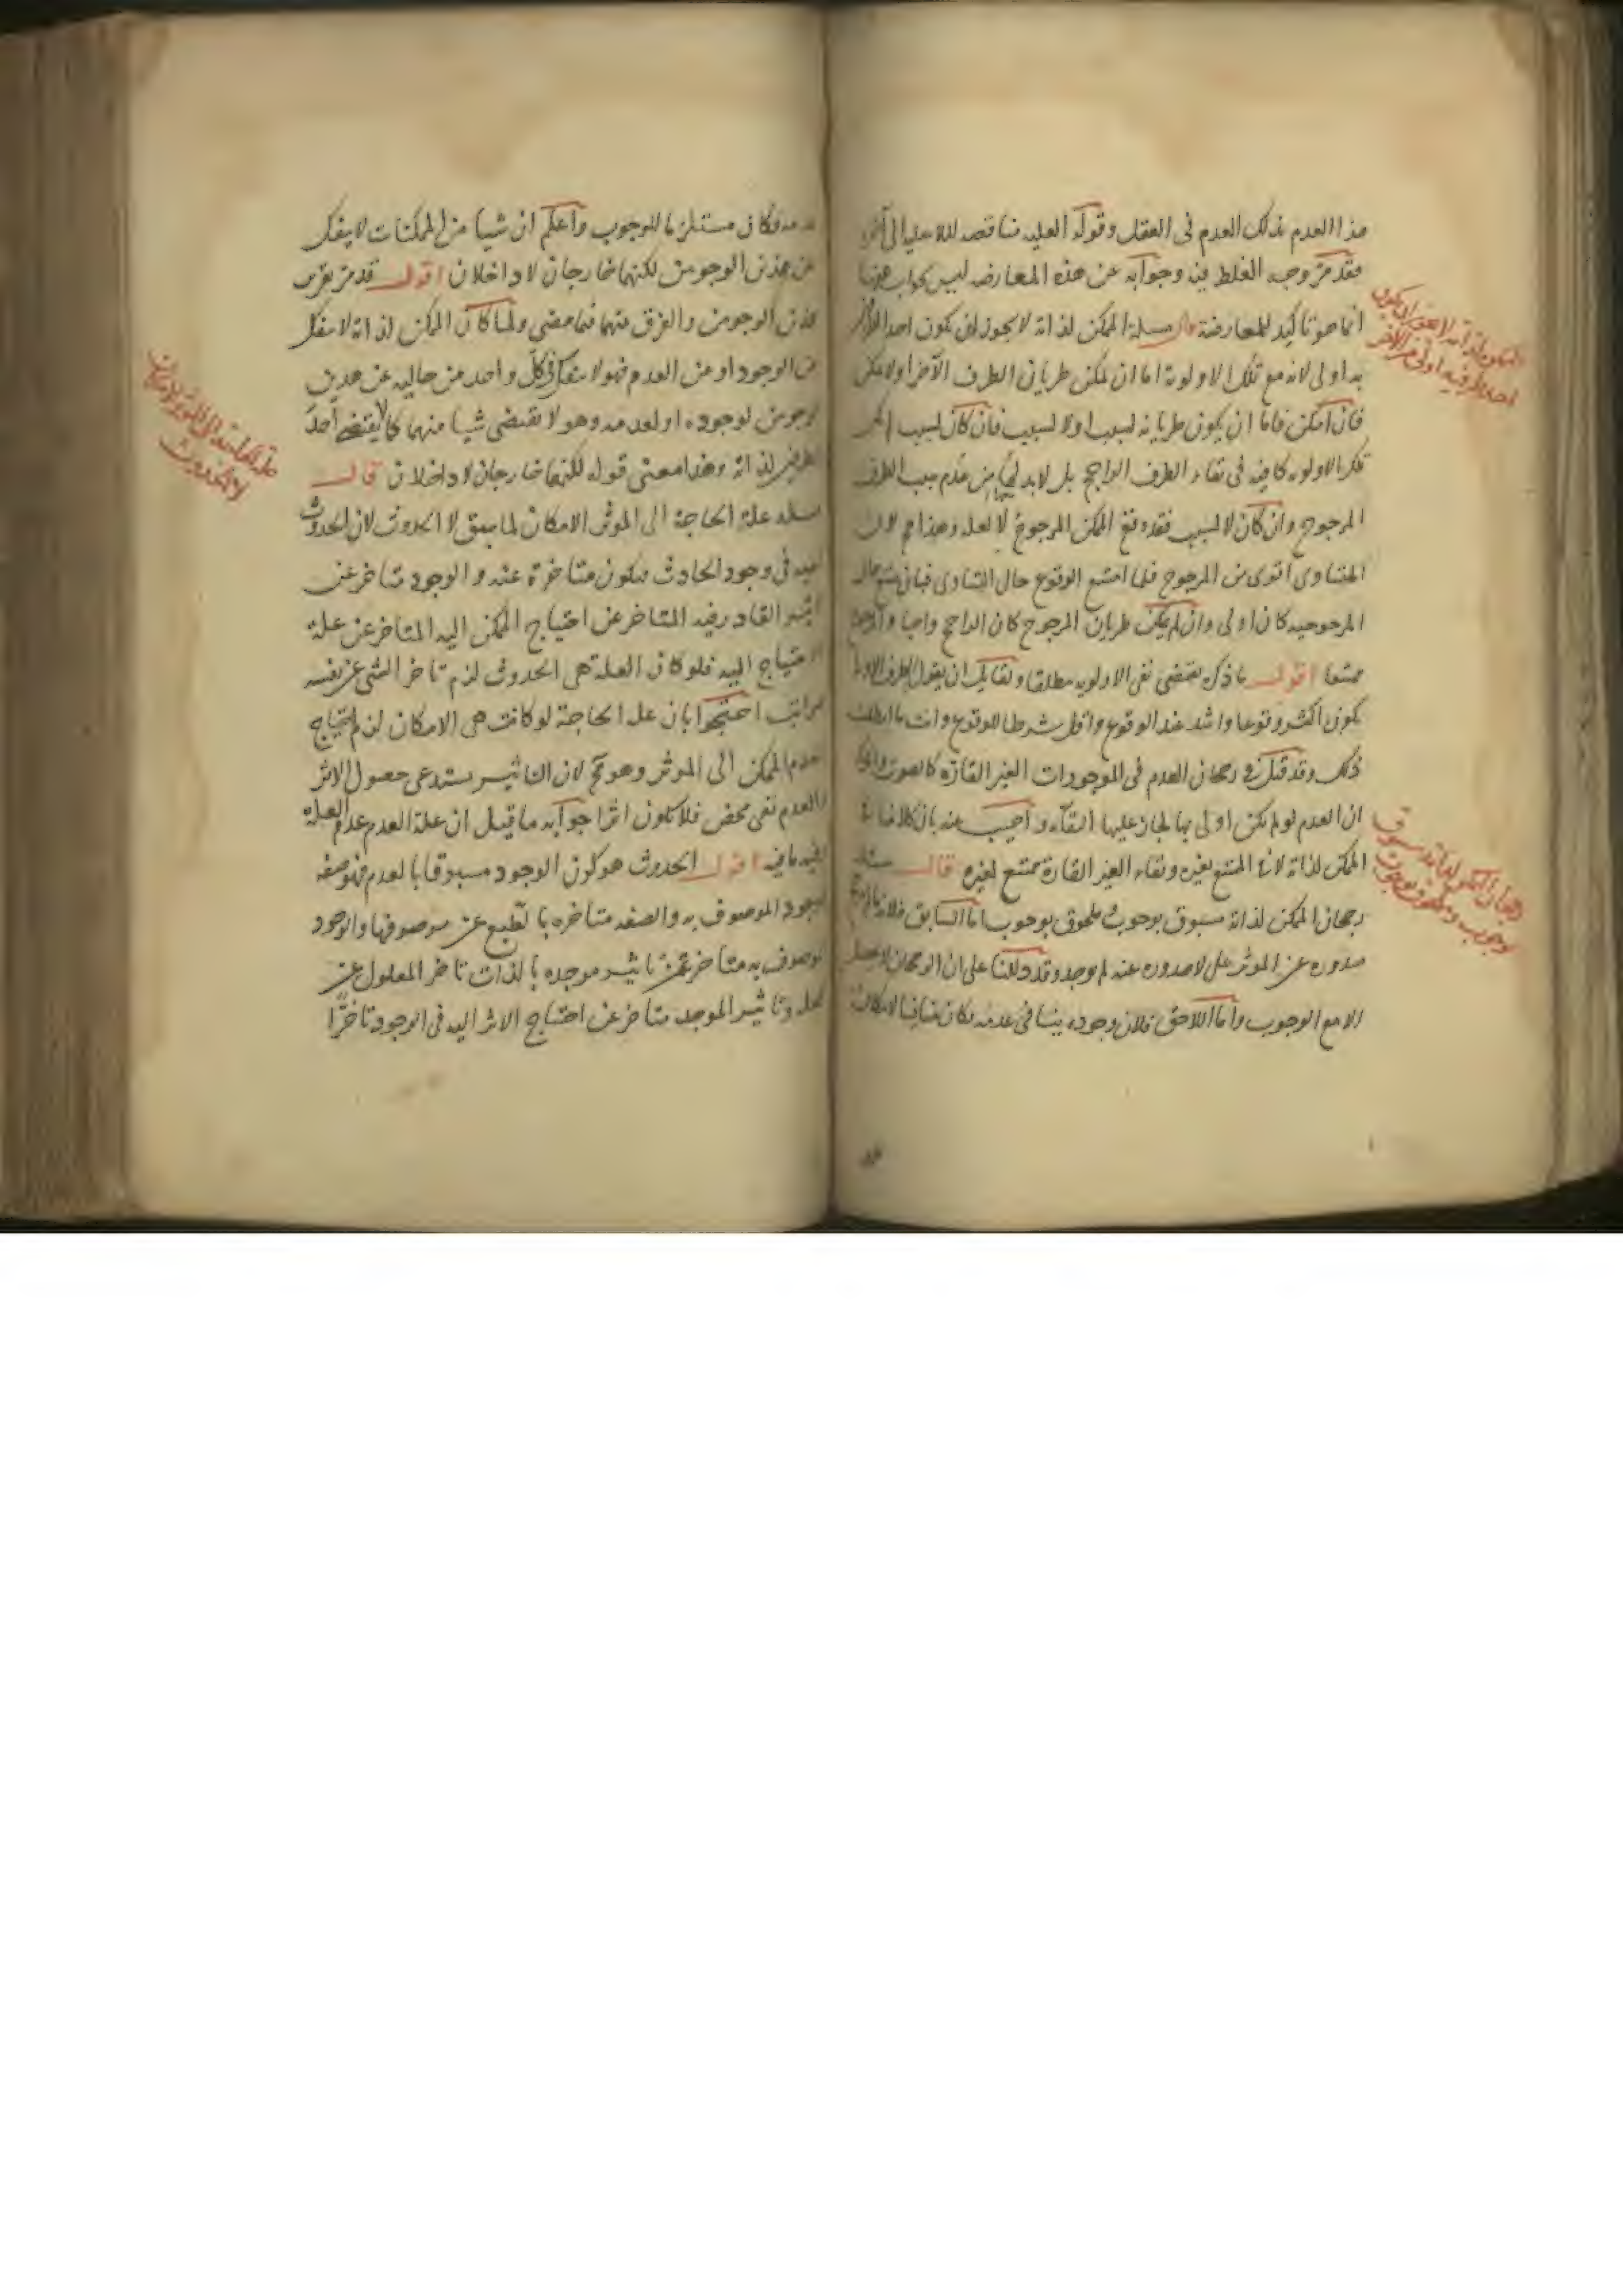 هذا العدم بذلك العدم فى العقل وقوله العليه مناقضه للا عليه الى آخره
فقد مرّ وجه الغلط فيه وجوابه عن هذه المعارضه ليس بجواب
انما هو تاكيد للمعارضة قال مسلة الممكن لذاته لا يجوز ان يكون احد
به اولى لانه مع تلك الاولوية اما ان يمكن طريان الطرف الآخر او لا يمكن
فان امكن فاما ان يكون طريانه لسبب او لا لسبب فان كان لسبب لم يكن
تلك الاولويه كافيه فى بقاء الطرف الراجح بل لا بد من عدم سبب الطرف
المرجوح وان كان لا لسبب فقد وقع الممكن المرجوح لا لعله وهذا مح لان
المتساوى اقوى من المرجوح فلما امتنع الوقوع حال التساوى فبان يمتنع حال
المرجوحيه كان اولى وان لم يمكن طريان المرجوح كان الراجح واجبا والمرجوح
ممتنعا اقول ما ذكره يقتضى نفى الاولويه مطلقا ولقائل ان يقول طرف الاولى
يكون اكثر وقوعا واشد عند الوقوع واقل شرطا للوقوع وانت ما ابطلت
ذلك وقد قيل فى رجحان العدم فى الموجودات الغير القارّة كالصوت
ان العدم لو لم يكن اولى بها لجاز عليها البقاء واجيب عنه بان كلامنا فى
الممكن لذاته لا فى الممتنع بغيره وبقاء الغير القارة ممتنع لغيره قال مسئله
رجحان الممكن لذاته مسبوق بوجوب ملحوق بوجوب اما السابق فلانه ما لم يترجح
صدوره عن الموثر على لا صدوره عنه لم يوجد وقد دللنا على ان الرجحان لا يحصل
الا مع الوجوب واما اللاحق فلان وجوده ينافى عدمه فكان منافيا لامكان
الممكن لذاته لا يجوز ان يكون
احد طرفيه اولى من الآخر
رجحان الممكن لذاته مسبوق
بوجوب وملحوق بوجوب
عدمه فكان مستلزما للوجوب واعلم ان شيا من الممكنات لا ينفك
عن هذين الوجوبين لكنهما خارجان لا داخلان اقول قد مر تقرير
هذين الوجوبين والفرق بينهما فيما مضى ولما كان الممكن لذاته لا ينفك
عن الوجود او عن العدم فهو لا ينفك فى كل واحد من حاليه عن هذين
الوجوبين لوجوده او لعدمه وهو لا يقتضى شيا منهما كما لا يقتضى احد
الطرفين لذاته وهذا معنى قوله لكنهما خارجان لا داخلان قال
مسله علة الحاجة الى الموثر الامكان لما سبق لا الحدوث لان الحدوث
كيفيه فى وجود الحادث فيكون متاخرة عنه والوجود متاخر عن
تاثير القادر فيه المتاخر عن احتياج الممكن اليه المتاخر عن علة
الاحتياج اليه فلو كان العلة هى الحدوث لزم تاخر الشى عن نفسه
بمراتب احتجوا بان علة الحاجة لو كانت هى الامكان لزم احتياج
عدم الممكن الى الموثر وهو مح لان التاثير يستدعى حصول الاثر
والعدم نفى محض فلا يكون اثرا جوابه ما قيل ان علة العدم عدم العلة
وفيه ما فيه اقول الحدوث هو كون الوجود مسبوقا بالعدم فهو صفه
للوجود الموصوف به والصفه متاخره بالطبع عن موصوفها والوجود
الموصوف به متاخر عن تاثير موجده بالذات تاخر المعلول عن
العله وتاثير الموجد متاخر عن احتياج الاثر اليه فى الوجود تاخرا
علة الحاجة الى الموثر الامكان
لا الحدوث